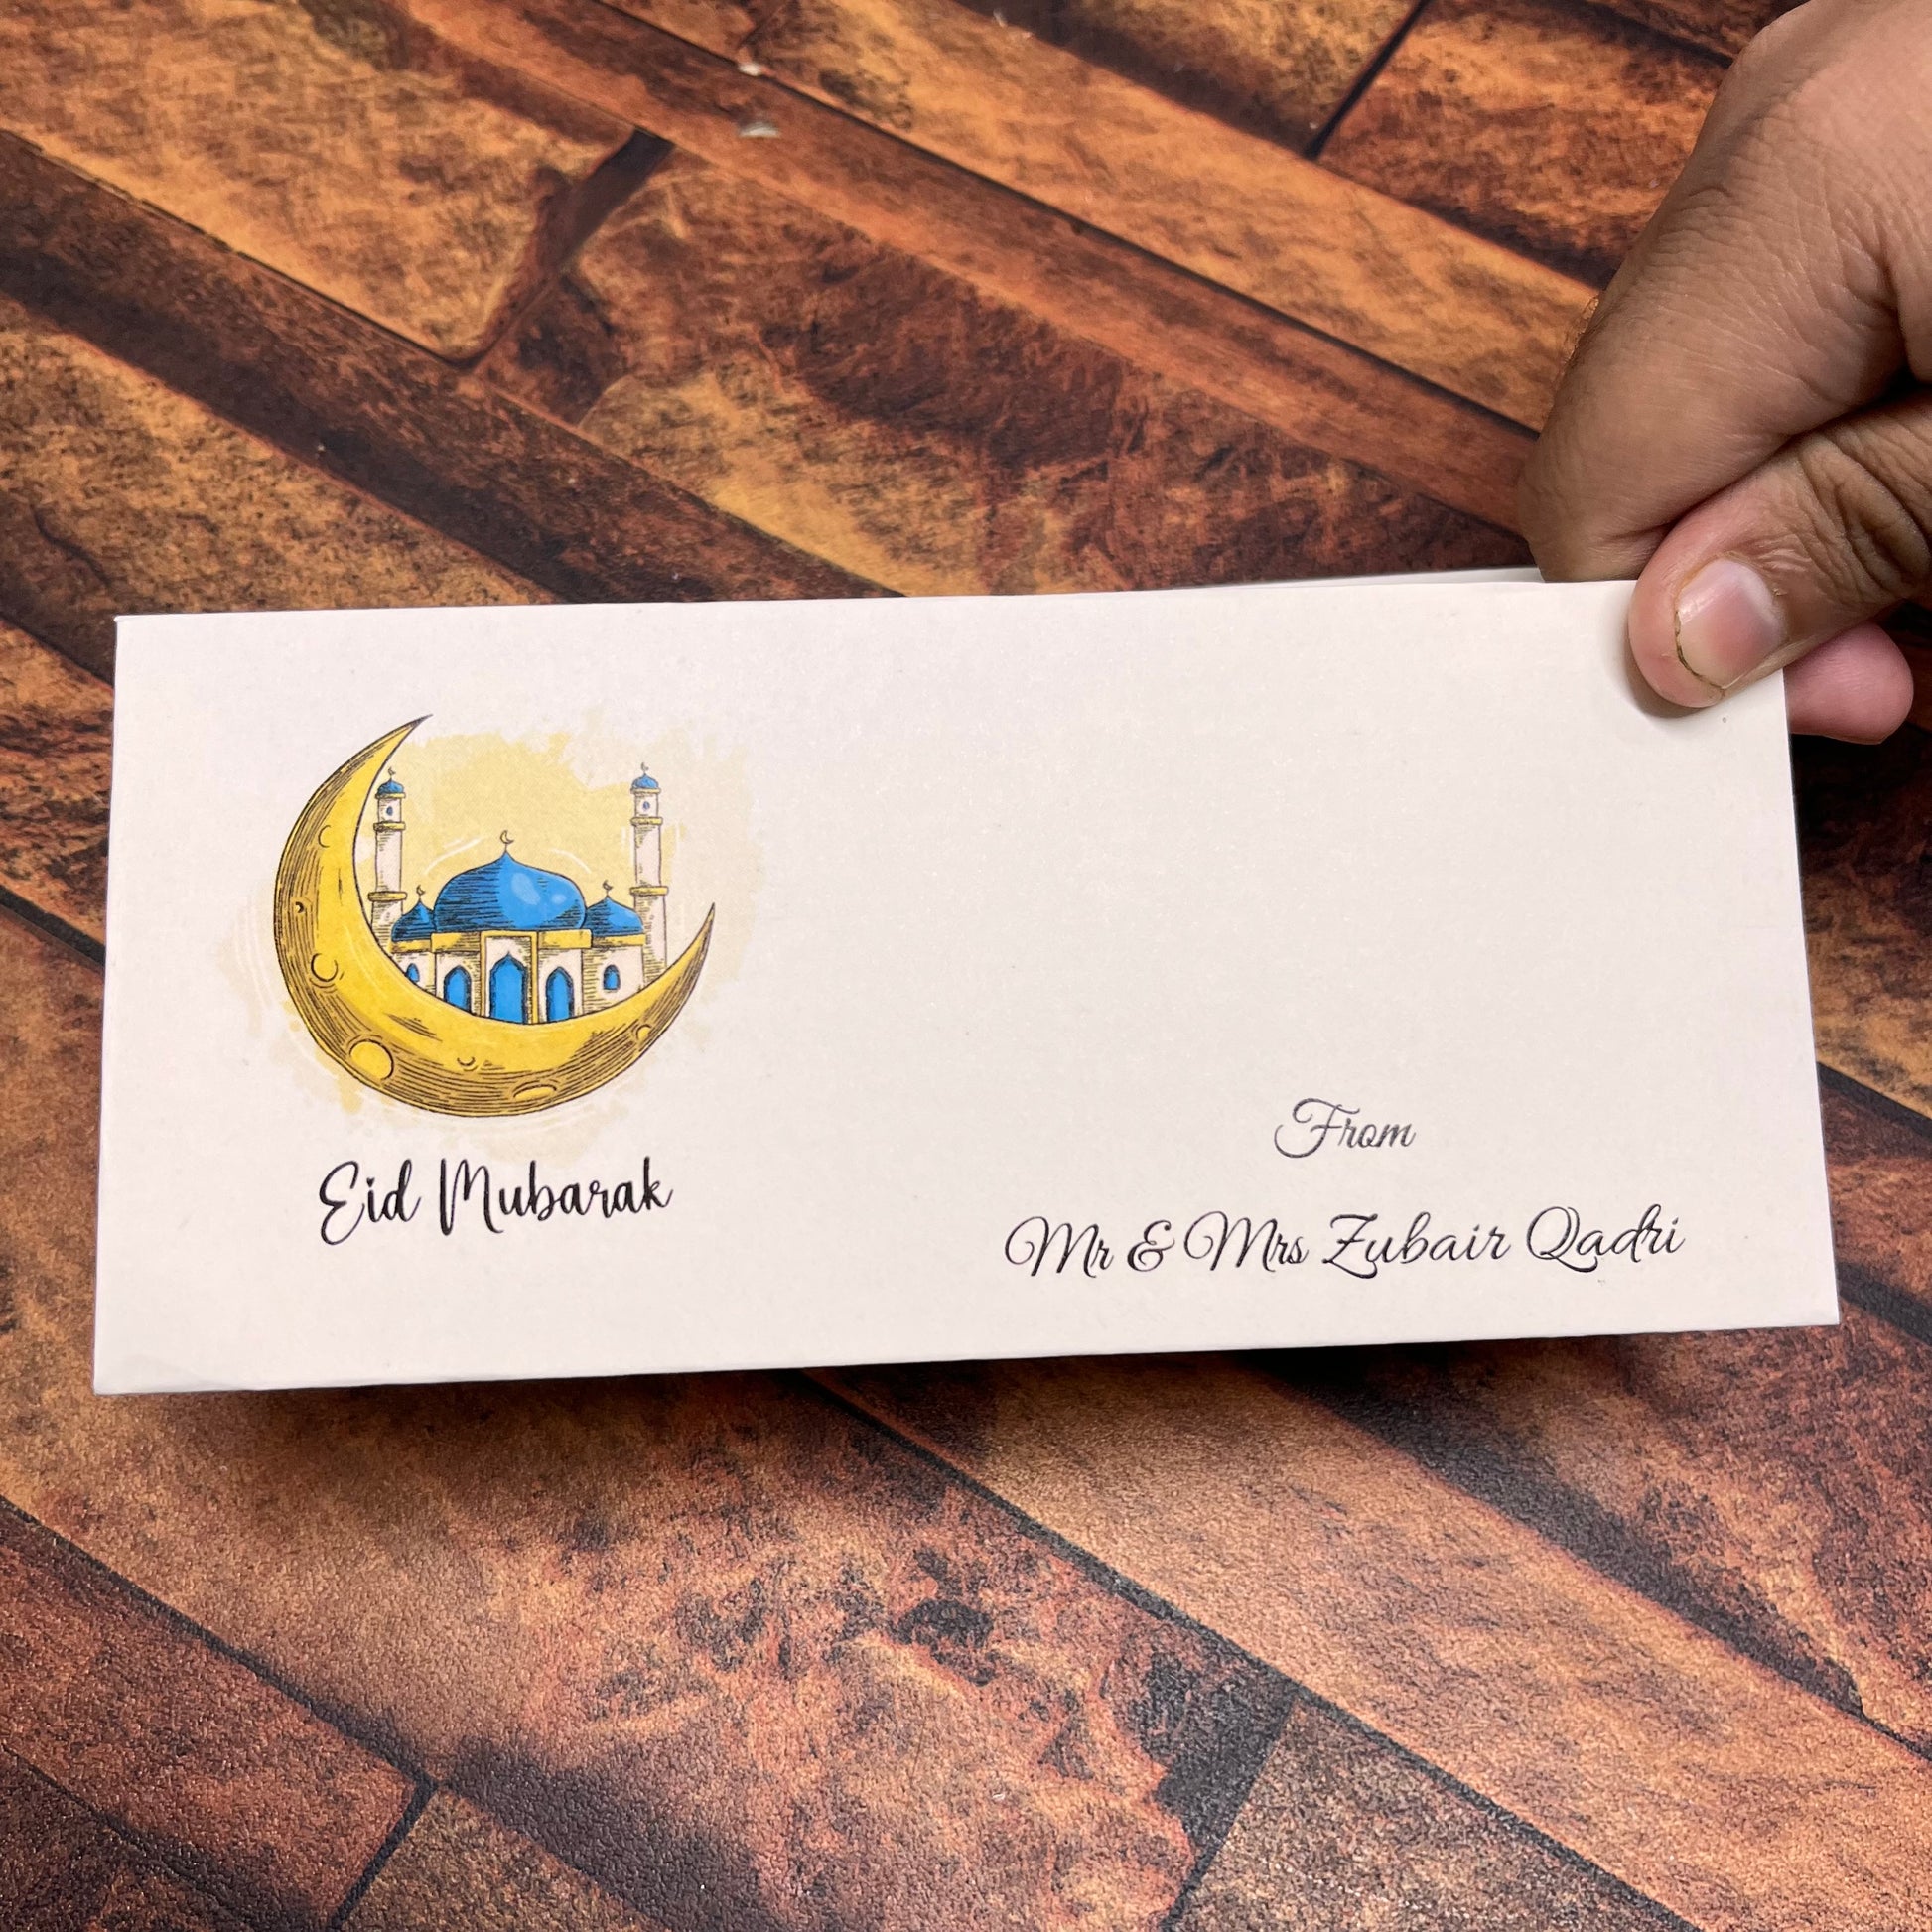 Eid Mubarak
From
Mr & Mrs Zubair Qadri